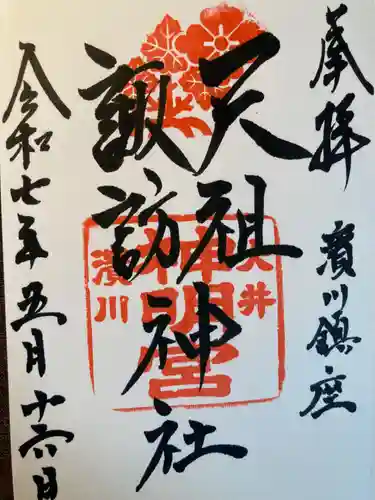 奉拝
濱川鎮座
天祖
諏訪
神社
大井
神明宮
濱川
令和七年五月十六日